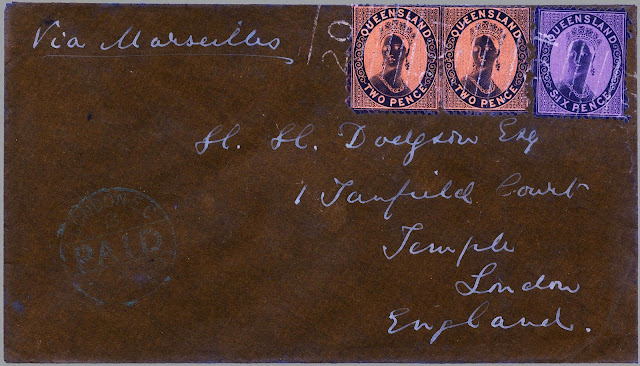 Via Marseilles
20
QUEENSLAND
TWO PENCE
QUEENSLAND
TWO PENCE
QUEENSLAND
SIX PENCE
H. H. Dodgson Esq
1 Tanfield Court
Temple
London
England.
LONDON E.C.
PAID